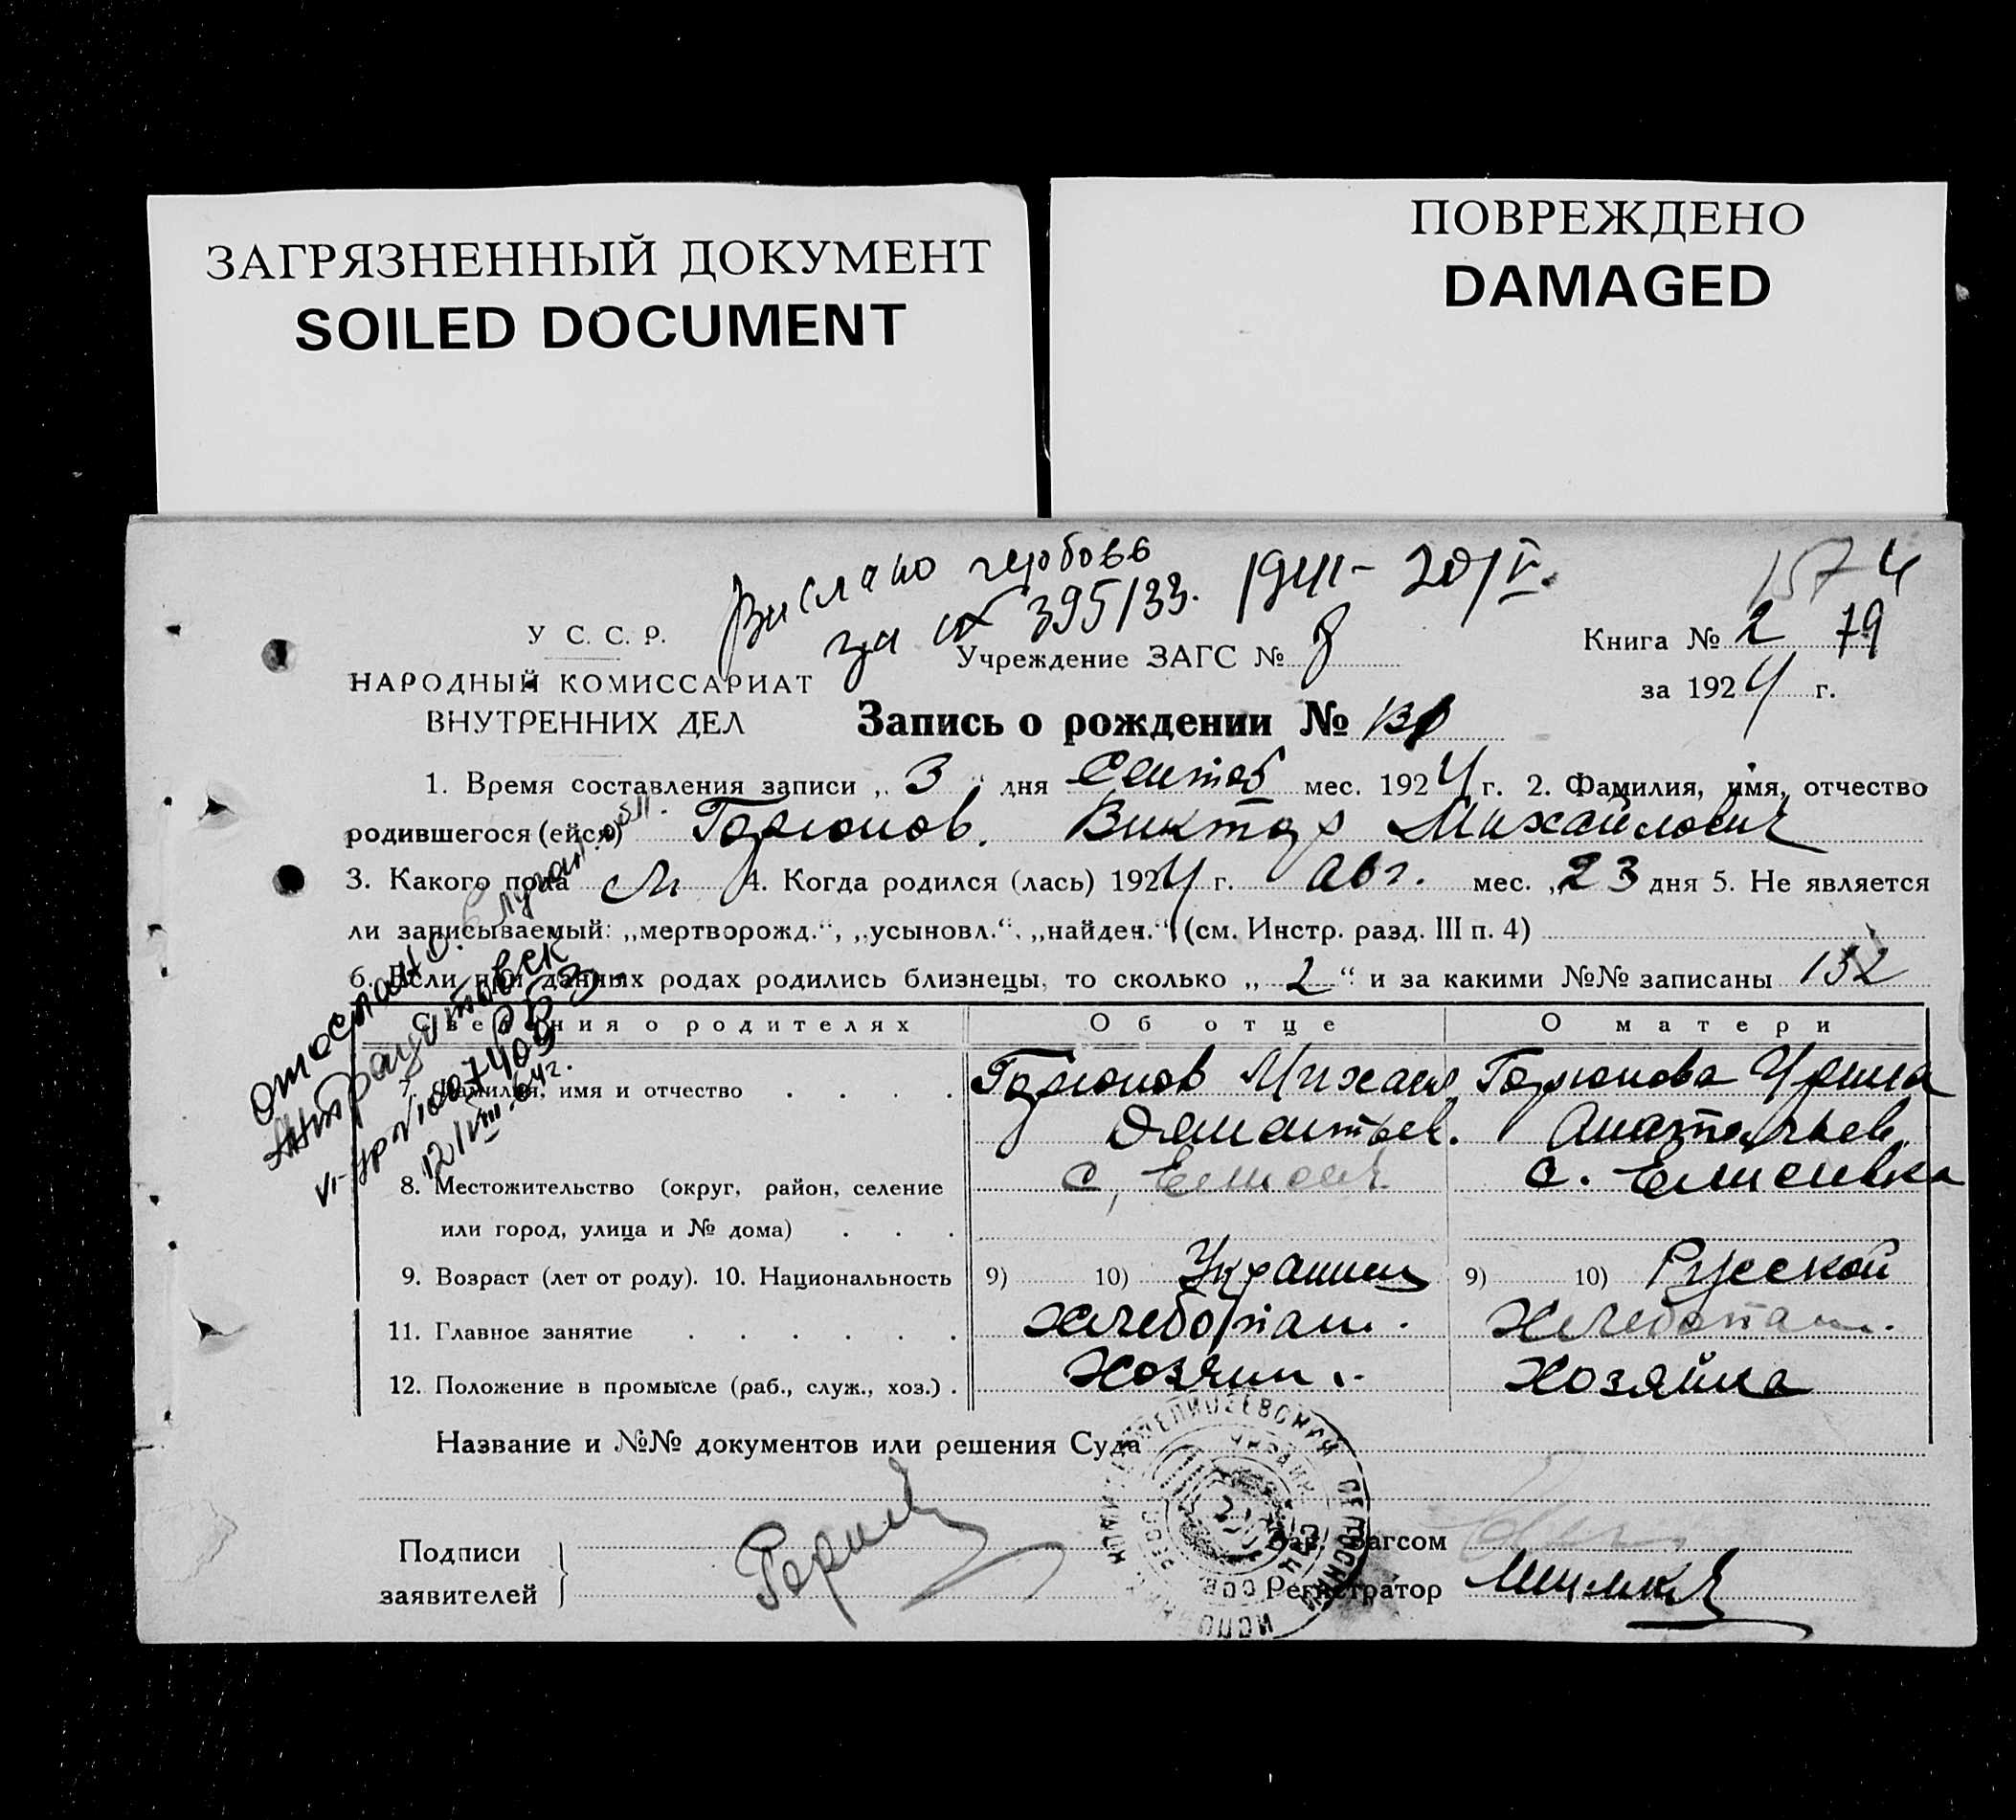 ЗАГРЯЗНЕННЫЙ ДОКУМЕНТ
SOILED DOCUMENT
ПОВРЕЖДЕНО
DAMAGED
Вислано гербове
за № 395/33. 1941 - 20/V.
1574
У С. С. Р.
НАРОДНЫЙ КОМИССАРИАТ
ВНУТРЕННИХ ДЕЛ
Учреждение ЗАГС № 8
Книга № 2 79
за 1924 г.
Запись о рождении № 131
1. Время составления записи „ 3 “ дня Сентоб мес. 1924 г. 2. Фамилия, имя, отчество
родившегося (ейся) Горюнов. Виктор Михайлович
3. Какого пола м 4. Когда родился (лась) 1924 г. авг. мес. „23 дня 5. Не является
ли записываемый: „мертворожд.“, „усыновл.“, „найден.“ (см. Инстр. разд. III п. 4)
6. Если при данных родах родились близнецы, то сколько „ 2 “ и за какими №№ записаны 132
Сведения о родителях
Об отце
О матери
7. Фамилия, имя и отчество . . . .
Горюнов Михаил
Горюнова Ирина
Дементьев.
Анатольев.
8. Местожительство (округ, район, селение
или город, улица и № дома) . . .
с. Елисеев
с. Елисеевка
9. Возраст (лет от роду). 10. Национальность
9) 10) Украинец
9) 10) Русской
11. Главное занятие . . . . . .
Хлебопаш.
Хлебопаш.
12. Положение в промысле (раб., служ., хоз.) .
Хозяин
Хозяйка
Название и №№ документов или решения Суда
Подписи
заявителей
Зав. Загсом
Регистратор
отослано. Луган. обл.
Антрацитовск
12/VIII-64г.
ЕЛИСЕЕВСКИЙ СЕЛЬСКИЙ